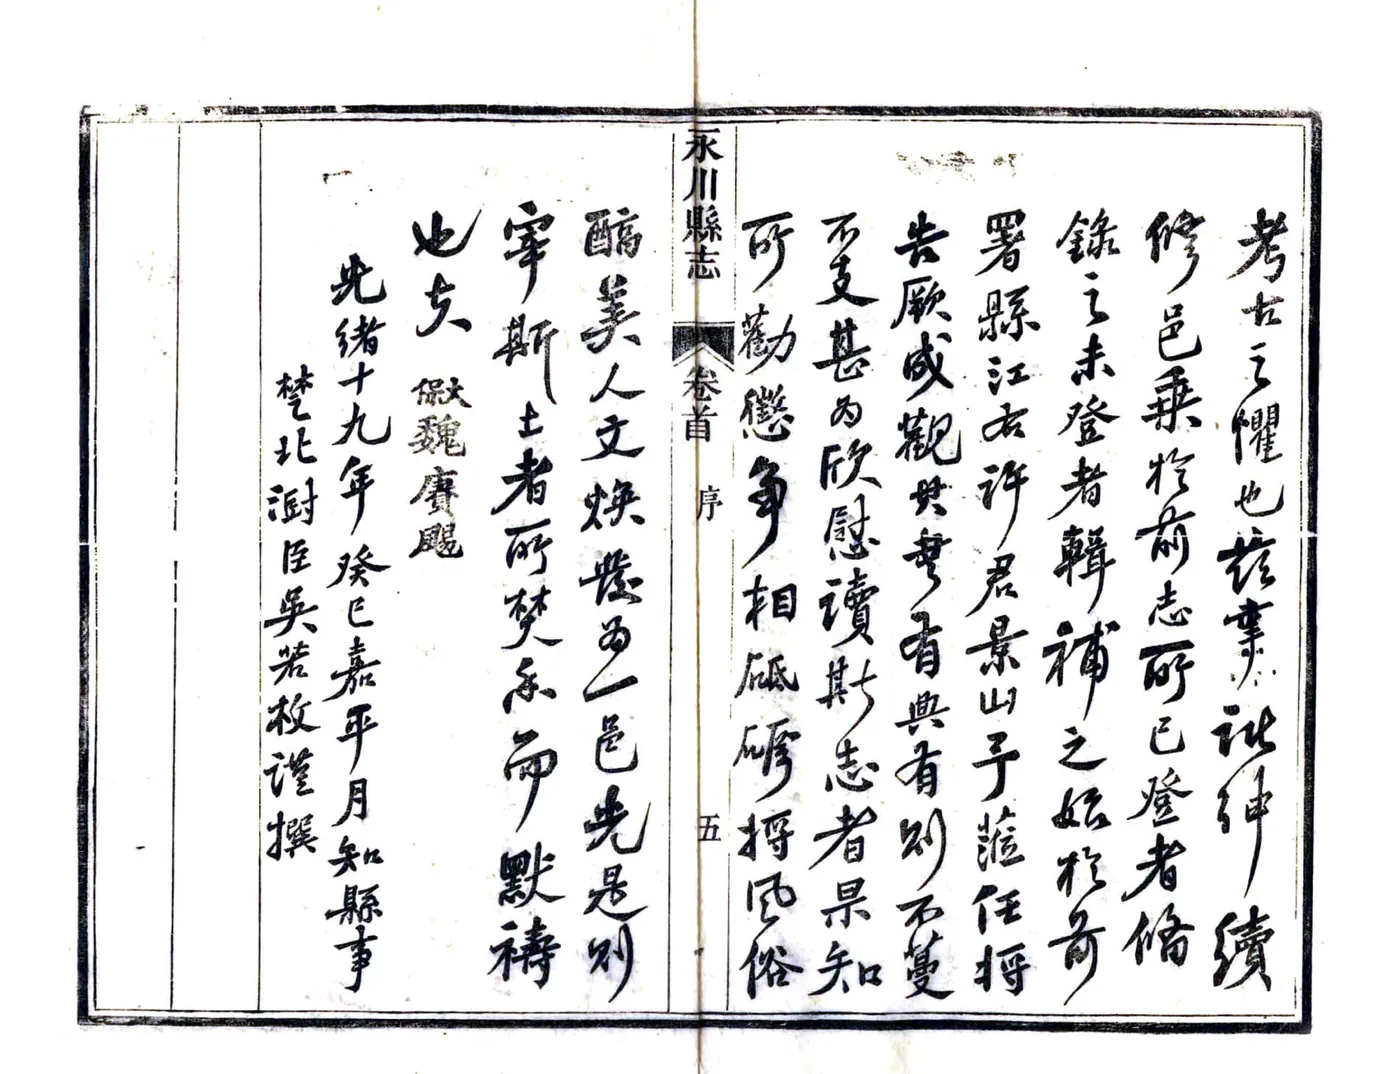 考古之懼也茲業⋯⋯訨紳續
修邑乗於前志所已登者脩
錄之未登者輯補之始於前
署縣江右許君景山予蒞任將
告厥成觀其書有典有則不蔓
不支甚為欣慰讀斯志者果知
所勸懲爭相砥礪將風俗
永川縣志 卷首 序 五
醕美人文煥發為一邑光是則
宰斯土者所焚香而默禱
也夫
歙魏賡颺
光緒十九年癸巳嘉平月知縣事
楚北澍臣吳若枚謹撰